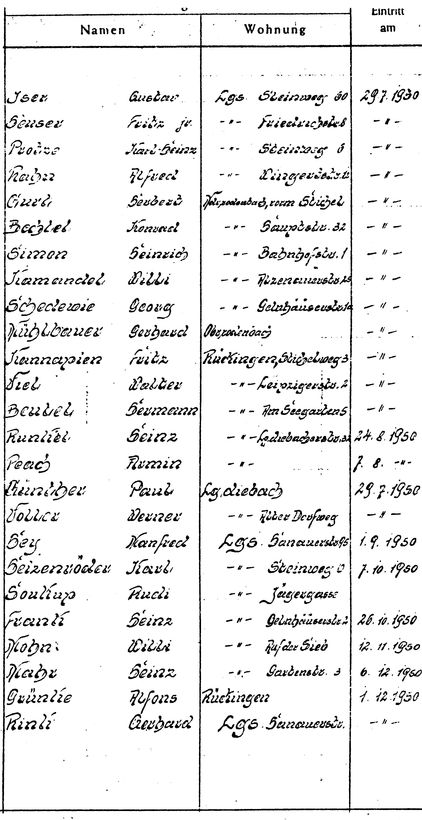 Eintritt
Namen Wohnung am
Iser Gustav Lgs. Steinweg 30 29.7.1950
Heuser Fritz jr. -"- Friedrichstr. 8 -"-
Karl-Heinz -"- Steinweg -"-
Hahn Alfred -"- -"-
Herbert -"-
Bechtel Konrad -"- Hauptstr. 32 -"-
Simon Heinrich -"- Bahnhofstr. 1 -"-
Kamandel Willi -"- -"-
Schedewie Georg -"- Gelnhäuserstr. -"-
Mühlbauer Gerhard Oberrodenbach -"-
Kannapien Fritz Rückingen, -"-
Viel Walter -"- Leipzigerstr. 2 -"-
Hermann -"- Am Seegarten 5 -"-
Runkel Heinz -"- 24.8.1950
Peach Armin -"- 7. 8. -"-
Günther Paul Lg. diebach 29.7.1950
Werner -"- Alter Dorfweg -"-
Hey Manfred Lgs. Hanauerstr. 1.9.1950
Heizenröder Karl -"- Steinweg 7.10.1950
Soukup Rudi -"- Jägergasse
Frank Heinz -"- Gelnhäuserstr. 2 26.10.1950
Mohn Willi -"- Auf der 12.11.1950
Mahr Heinz -"- Gartenstr. 3 6.12.1950
Alfons Rückingen 1.12.1950
Rink Gerhard Lgs. Hanauerstr. -"-